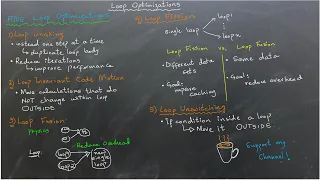 Loop Optimizations
FREE Loop Optimization!
1) Loop Unrolling
• instead one step at a time
↳ duplicate loop body
• Reduce iterations
↳ improve performance
2) Loop Invariant Code Motion
• Move calculations that do
NOT change within loop
OUTSIDE
3) Loop Fusion
Physics
Reduce Overhead
Loop
loop1
loop2
new
single
loop
4) Loop Fission
single loop
loop1
loopx
Loop Fission vs. Loop Fusion
• Different data
sets
• Goal:
improve
caching
• Same data
• Goal:
reduce overhead
5) Loop Unswitching
• If condition inside a loop
↳ Move it OUTSIDE
Support my
Channel!